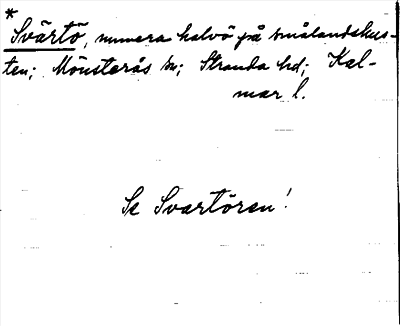 *
Svärtö, numera halvö på smålandskus-
ten; Mönsterås sn; Stranda hd; Kal-
mar l.
Se Svartören!